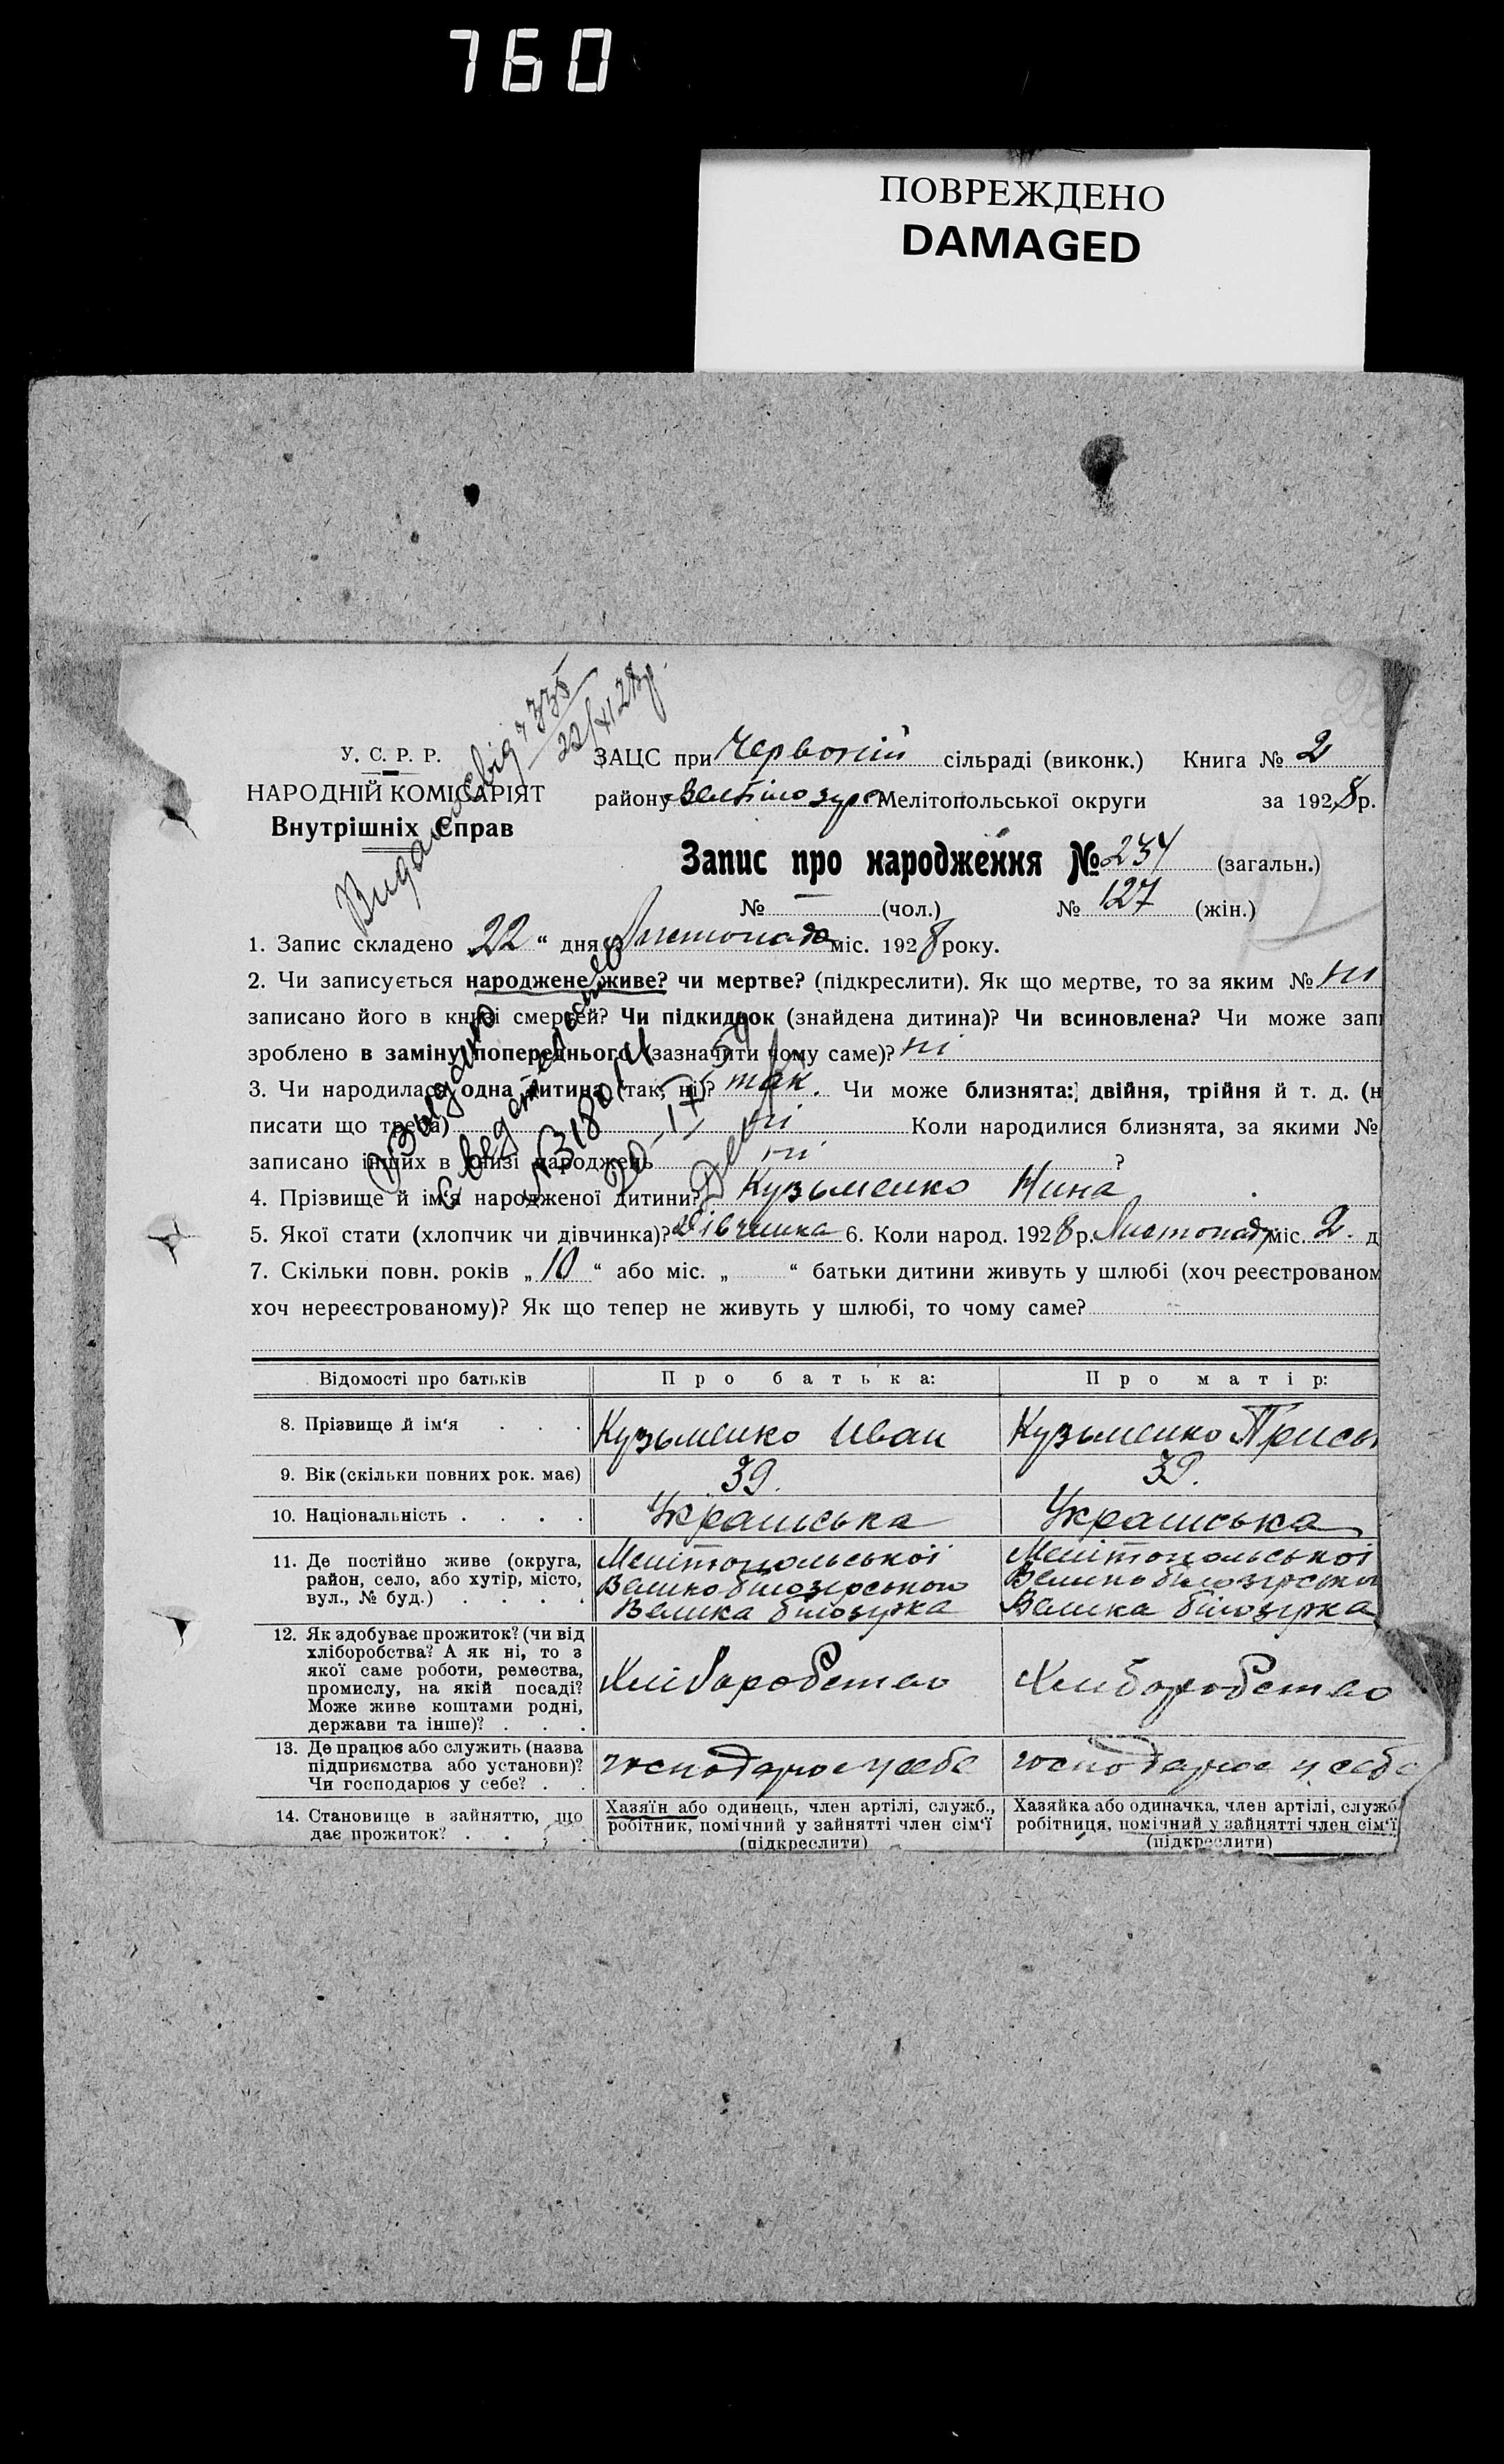 760
ПОВРЕЖДЕНО
DAMAGED
У. С. Р. Р.
НАРОДНІЙ КОМІСАРІЯТ
Внутрішніх Справ
ЗАЦС при Червоній сільраді (виконк.) Книга № 2
району Мелітопольської округи за 1928 р.
Запис про народження № 234 (загальн.)
№ — (чол.) № 127 (жін.)
1. Запис складено 22 “ дня Листопада міс. 1928 року.
2. Чи записується народжене живе? чи мертве? (підкреслити). Як що мертве, то за яким № ні
записано його в книзі смертей? Чи підкидьок (знайдена дитина)? Чи всиновлена? Чи може запи
зроблено в заміну попереднього (зазначити чому саме)? ні
3. Чи народилася одна дитина (так, ні)? так. Чи може близнята: двійня, трійня й т. д. (н
писати що треба) ні Коли народилися близнята, за якими №
записано інших в книзі народжень ні ?
4. Прізвище й ім‘я народженої дитини? Кузьменко Нина
5. Якої стати (хлопчик чи дівчинка)? дівчинка 6. Коли народ. 1928 р. Листопаду міс. 2. д
7. Скільки повн. років „ 10 “ або міс. „ “ батьки дитини живуть у шлюбі (хоч реєстрованом
хоч нереєстрованому)? Як що тепер не живуть у шлюбі, то чому саме?
Видано 335
22/XI 28р.
Выдано
свидетельство
20-IV 59
Відомості про батьків Про батька: Про матір:
8. Прізвище й ім‘я . . . Кузьменко Иван Кузьменко Прись
9. Вік (скільки повних рок. має) 39. 39.
10. Національність . . . . Українська Українська
11. Де постійно живе (округа, район, село, або хутір, місто, вул., № буд.) . . . .
Мелітопольської Мелітопольської
Великобілозірського Великобілозірськ
Велика білозірка Велика білозірка
12. Як здобуває прожиток? (чи від
хліборобства? А як ні, то з
якої саме роботи, ремества,
промислу, на якій посаді?
Може живе коштами родні,
держави та інше)? . . .
Хліборобство Хліборобство
13. Де працює або служить (назва
підприємства або установи)?
Чи господарює у себе? . .
господарює у себе господарює у себе
14. Становище в зайняттю, що
дає прожиток? . . . .
Хазяїн або одинець, член артілі, служб.,
робітник, помічний у зайнятті член сім‘ї
(підкреслити)
Хазяйка або одиначка, член артілі, служб.
робітниця, помічний у зайнятті член сім‘ї
(підкреслити)